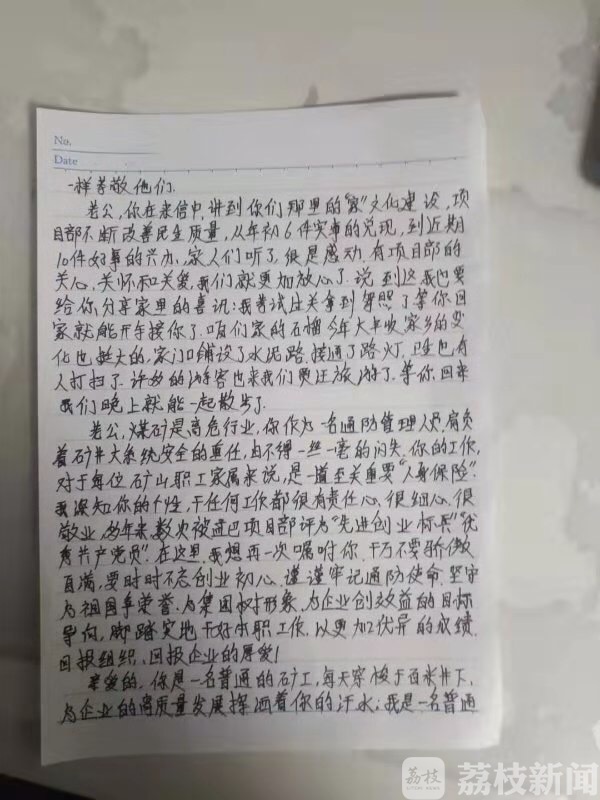 No.
Date
一样孝敬他们.
老公,你在来信中,讲到你们那里的“家”文化建设,项
目部不断改善民生质量,从年初6件实事的兑现,到近期
10件好事的兴办,家人们听了,很是感动.有项目部的
关心、关怀和关爱,我们就更加放心了.说到这,我也要
给你分享家里的喜讯:我考试过关拿到驾照了等你回
家就能开车接你了.咱们家的石榴今年大丰收,家乡的变
化也挺大的,家门口铺设了水泥路,接通了路灯,卫生也有
人打扫了.许多的游客也来我们贾汪旅游了.等你回来
我们晚上就能一起散步了.
老公,煤矿是高危行业,你作为一名通防管理人员,肩负
着矿井大系统安全的重任,由不得一丝一毫的闪失.你的工作,
对于每位矿山职工家属来说,是一道至关重要“人身保险”.
我深知你的个性,干任何工作都很有责任心、很细心、很
敬业,多年来,数次被巴项目部评为“先进创业标兵”“优
秀共产党员”.在这里,我想再一次嘱咐你,千万不要骄傲
自满,要时时不忘创业初心、谨谨牢记通防使命,坚守
为祖国争荣誉、为集团树形象、为企业创效益的目标
导向,脚踏实地干好本职工作,以更加优异的成绩,
回报组织、回报企业的厚爱!
亲爱的,你是一名普通的矿工,每天穿梭于百米井下,
为企业的高质量发展挥洒着你的汗水;我是一名普通
荔枝
荔枝新闻